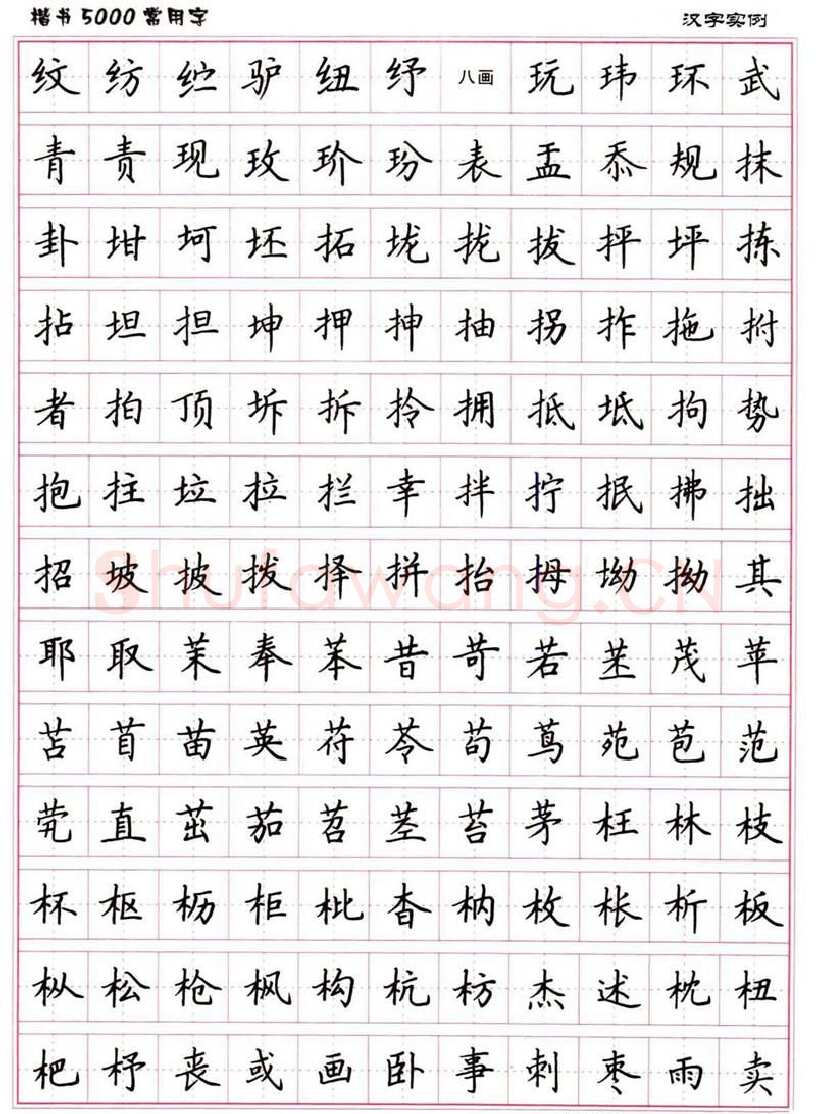 楷书5000常用字 汉字实例
纹 纺 纻 驴 纽 纾 八画 玩 玮 环 武
青 责 现 玫 玠 玢 表 盂 忝 规 抹
卦 坩 坷 坯 拓 垅 拢 拔 抨 坪 拣
拈 坦 担 坤 押 抻 抽 拐 拃 拖 拊
者 拍 顶 坼 拆 拎 拥 抵 坻 拘 势
抱 拄 垃 拉 拦 幸 拌 拧 抿 拂 拙
招 坡 披 拨 择 拼 抬 拇 坳 拗 其
耶 取 茉 奉 苯 昔 苛 若 茂 苹
苫 苜 苗 英 苻 苓 苟 茑 苑 苞 范
茕 直 茁 茄 苕 茎 苔 茅 枉 林 枝
杯 枢 枥 柜 枇 杳 枘 枚 枨 析 板
枞 松 枪 枫 构 杭 枋 杰 述 枕 杻
杷 杼 丧 或 画 卧 事 刺 枣 雨 卖
Shufawang.CN